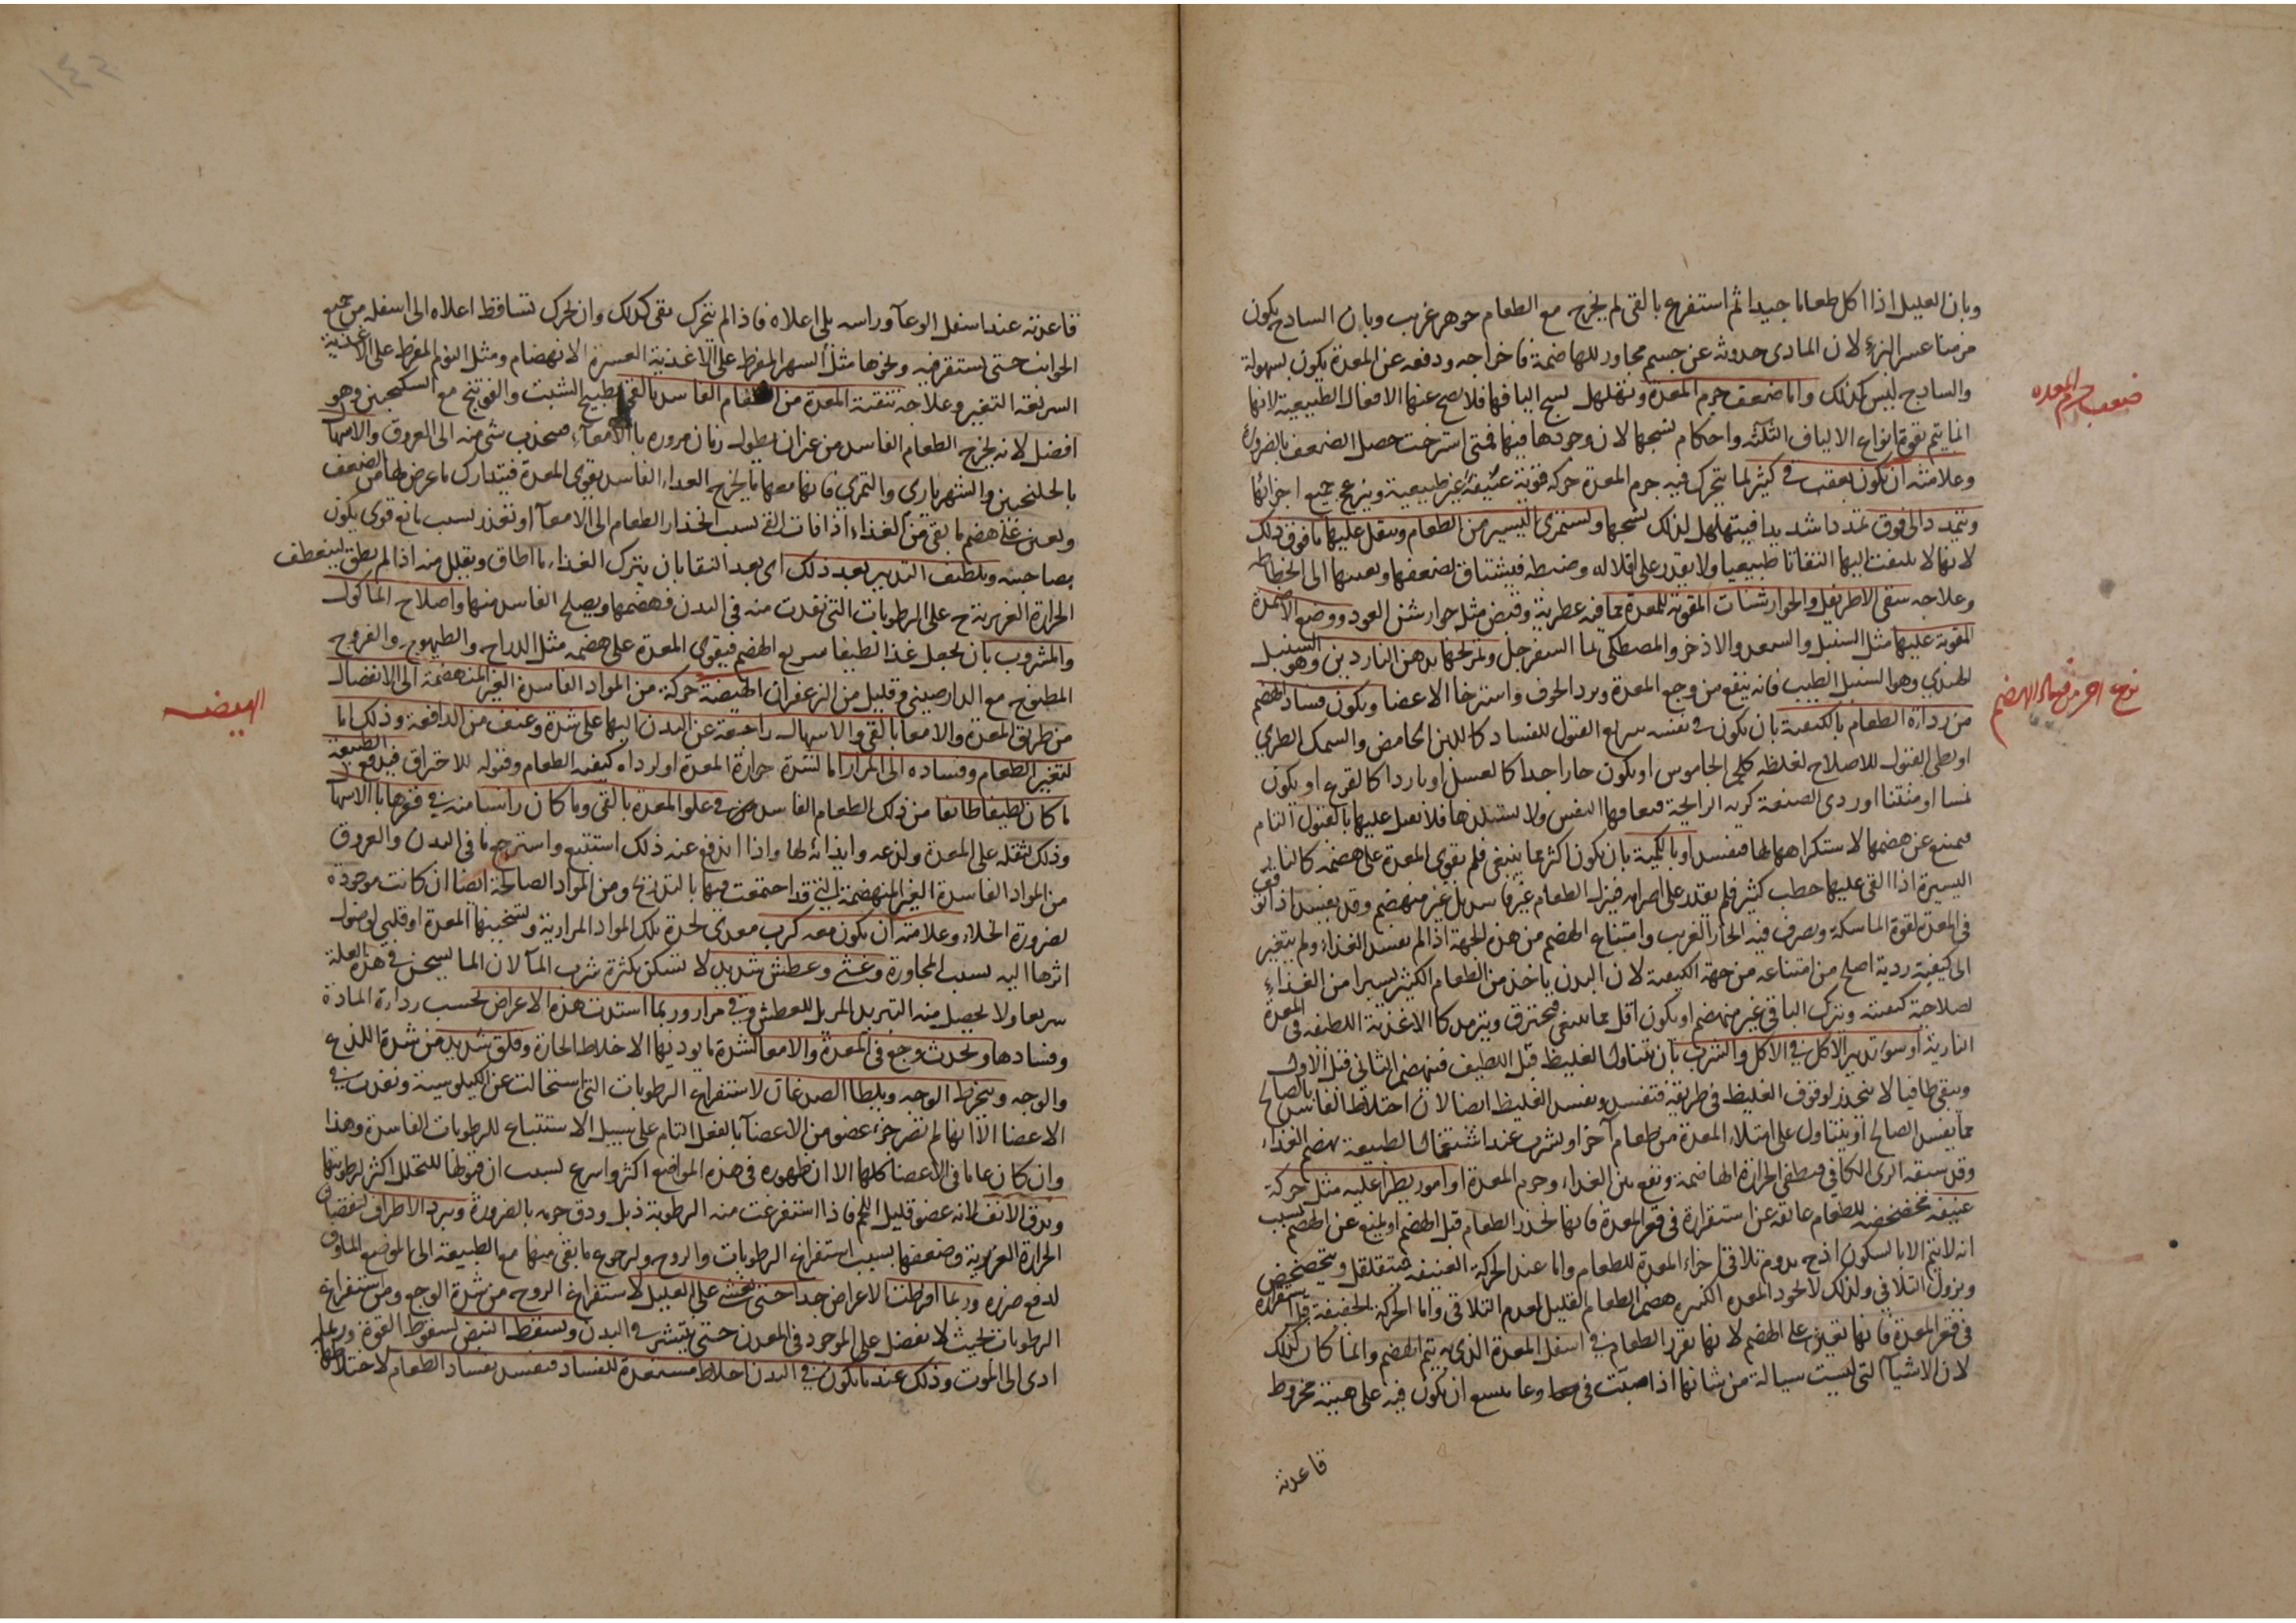 وبان العليل اذا اكل طعاما جيدا ثم استفرغ بالقى لم يخرج مع الطعام جوهر غريب وبان الساذج يكون
مزمنا عسر البرء لان المادى حدوثه عن جسم مجاور للهاضمة فاخراجه ودفعه عن المعدة يكون بسهولة
والساذج ليس كذلك واما ضعف جرم المعدة وتهلهل نسج اليافها فلا يصح عنها الافعال الطبيعية لانها
انما يتم بقوة انواع الالياف الثلثه واحكام نسجها لان وجودها فيها فمتى استرخت حصل الضعف بالضرورة
وعلامته ان يكون بعقب فى كثير لما يتحرك فيه جرم المعدة حركه قوية عنيفة غير طبيعية وينزعج جميع اجزائها
وتتمدد الى فوق تمددا شديدا فيتهلهل لذلك نسجها ويستمرئ اليسير من الطعام ويثقل عليها ما فوق ذلك
لانها لا يلتفت اليها التفاتا طبيعيا ولا يقدر على اقلاله وضبطه فيشتاق لضعفها وتعبها الى انحطاطه
وعلاجه سقى الاطريفل والجوارشنات المقوية للمعدة مما فيه عطرية وقبض مثل جوارشن العود ووضع الاضمدة
المقوية عليها مثل السنبل والسعد والاذخر والمصطكى بماء السفرجل وتمريخها بدهن الناردين وهو السنبل
الهندى وهو السنبل الطيب فانه ينفع من وجع المعدة وبرد الجوف واسترخا الاعضا ويكون فساد الهضم
من رداءة الطعام بالكيفية بان يكون فى نفسه سريع القبول للفساد كاللبن الحامض والسمك الطرى
او بطى القبول للاصلاح لغلظه كلحم الجاموس او يكون حارا جدا كالعسل او باردا كالقرع او يكون
او منتنا او ردى الصنعة كريه الرايحة فيعافها النفس ولا يستلذها فلا تقبل عليها بالقبول التام
فيمتنع عن هضمها لاستكراهها لها فيفسد او بالكمية بان يكون اكثر مما ينبغى فلم يقوى المعدة على هضمه كالنار
اليسيرة اذا القى عليها حطب كثير فلم يقدر على احراقه فيترك الطعام غير فاسد بل غير منهضم وقد يفسد اذا توقف
فى المعدة لقوة الماسكة ويصرف فيه الحار الغريب وامتناع الهضم من هذه الجهة اذا لم يفسد الغذاء ولم يتغير
الى كيفية ردية اصلح من امتناعه من جهة الكيفية لان البدن ياخذ من الطعام الكثير يسيرا من الغذاء
لصلاحية كيفيته ويترك الباقى غير منهضم او يكون اقل مما ينبغى فيحترق ويترمد كالاغذية اللطيفه فى المعدة
النارية او سوء تدبير الاكل فى الاكل والشرب بان يتناول الغليظ قبل اللطيف فينهضم الثانى قبل الاول
ويبقى طافيا لا ينحدر لوقوف الغليظ فى طريقه فيفسد ويفسد الغليظ ايضا لان اختلاط الفاسد بالصالح
مما يفسد الصالح او يتناول على امتلاء المعدة من طعام آخر او يشرب عند اشتغال الطبيعة بهضم الغذاء
وقد سبقه الرى الكافى فيطفى الحرارة الهاضمة ويقع بين الغذاء وجرم المعدة او امور يطرا عليه مثل حركة
عنيفة مخضخضة للطعام عائقة عن استقراره فى قعر المعدة فانها يحدر الطعام قبل الهضم او يمنع عن الهضم بسبب
انه لا يتم الا بالسكون اذ به يدوم تلاقى اجزاء المعدة للطعام واما عند الحركة العنيفة فيتقلقل ويتخضخض
ويزول التلاقى ولذلك لا يجود المعدة الكبيرة هضم الطعام القليل لعدم التلاقى واما الحركة الخفيفة قبل استقراره
فى قعر المعدة فانها تعين على الهضم لانها تقرر الطعام فى اسفل المعدة الذى به يتم الهضم وانما كان كذلك
لان الاشياء التى ليست سيالة من شانها اذا صبت فى وعاء يتسع ان يكون فيه على هيئة مخروط
قاعدته
ضعف جرم المعده
نوع اخر من فساد الهضم
قاعدته عند اسفل الوعآ وراسه يلى اعلاه فاذا لم يتحرك بقى كذلك وان تحرك تساقط اعلاه الى اسفله من جميع
الجوانب حتى يستقر فيه ونحوها مثل السهر المفرط على الاغذية العسرة الانهضام ومثل النوم المفرط على الاغذية
السريعة التغير وعلاجه تنقية المعدة من الطعام الفاسد بالقى بطبيخ الشبت والفوتنج مع السكنجبين وهو
افضل لانه يخرج الطعام الفاسد من غير ان يطول زمان مروره بالامعاء فينجذب شى منه الى العروق والاسهال
بالجلنجبين والشهريارى والتمرى فانها معها انها يخرج الغداء الفاسد يقوى المعدة فيتدارك ما عرض لها من الضعف
ويعين على هضم ما بقى من الغذاء اذا فات القى بسبب انحدار الطعام الى الامعآ او تعذر بسبب مانع قوى يكون
بصاحبه وتلطيف التدبير بعد ذلك اى بعد النقا بان يترك الغذاء ما اطاق ويقلل منه اذا لم يطق لينعطف
الحرارة الغريزية ح على الرطوبات التى نفذت منه فى البدن فيهضمها ويصلح الفاسد منها واصلاح الماكول
والمشروب بان يجعل غذا لطيفا سريع الهضم فيقوى المعدة على هضمه مثل الدراج والطيهوج والفروج
المطبوخ مع الدارصينى وقليل من الزعفران الهيضة حركة من المواد الفاسدة الغير المنهضمة الى الانفصال
من طريق المعدة والامعا بالقى والاسهال راجعة عن البدن اليها على شدة وعنف من الدافعة وذلك اما
لتغير الطعام وفساده الى المرار اما لشدة حرارة المعدة او لرداءه كيفيه الطعام وقبوله للاحتراق فيدفع الطبيعة
ما كان لطيفا طافيا من ذلك الطعام الفاسد فى علو المعدة بالقى وما كان راسبا منه فى قعرها بالاسهال
وذلك لثقله على المعدة ولذعه وايذائه لها واذا اندفع عنه ذلك استتبع واسترجع ما فى البدن والعروق
من المواد الفاسدة الغير المنهضمة التى قد اجتمعت فيها بالتدريج ومن المواد الصالحة ايضا ان كانت موجودة
لضرورة الخلاء وعلامته ان يكون معه كرب معدى لحدة تلك المواد المرارية وتسخينها المعدة او قلبى لوصول
اثرها اليه بسبب المجاورة وغثى وعطش شديد لا يسكن بكثرة شرب المآ لان الما يسخن فى هذه العلة
سريعا ولا يحصل منه التبريد المزيل للعطش وقى مرار وربما اشتدت هذه الاعراض بحسب رداءة المادة
وفسادها ويحدث وجع فى المعدة والامعا لشدة ما يوديها الاخلاط الحارة وقلق شديد من شدة اللذع
والوجه وينخرط الوجه ويلطا الصدغان لاستفراغ الرطوبات التى استحالت عن الكيلوسية ونفذت فى
الاعضا الا انها لم تصر جزء عضو من الاعضآ بالفعل التام على سبيل الاستتباع للرطوبات الفاسدة وهذا
وان كان عاما فى الاعضا كلها الا ان ظهوره فى هذه المواضع اكثر واسرع بسبب ان قبولها للتحلل اكثر لرطوبتها
ويدق الانف لانه عضو قليل اللحم فاذا استفرغت منه الرطوبة ذبل ودق جرمه بالضرورة ويبرد الاطراف لنقصان
الحرارة الغريزية وضعفها بسبب استفراغ الرطوبات والروح ولرجوع ما بقى منها مع الطبيعة الى الموضع الماؤف
لدفع ضرره وربما افرطت الاعراض جدا حتى يغشى على العليل لاستفراغ الروح من شدة الوجع ومن استفراغ
الرطوبات بحيث لا يفضل على الموجود فى المعدن حتى ينتشر فى البدن ويسقط النبض لسقوط القوة وربما
ادى الى الموت وذلك عند ما يكون فى البدن اخلاط مستعدة للفساد فيفسد بفساد الطعام لاختلاطها
الهيضه
١٤٢